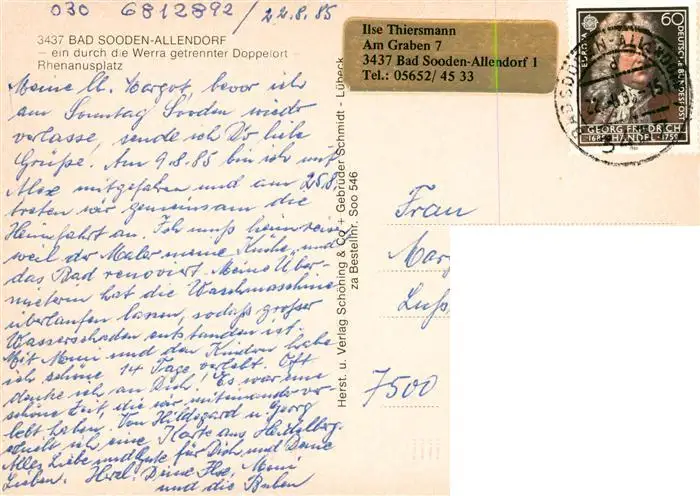 030 6812892 / 22.8.85
3437 BAD SOODEN-ALLENDORF
— ein durch die Werra getrennter Doppelort —
Rhenanusplatz
Meine lb. Margot, bevor ich
am Sonntag Sooden wieder
verlasse, sende ich Dir liebe
Grüße. Am 9.8.85 bin ich mit
Alex mitgefahren und am 25.8.
treten wir gemeinsam die
Heimfahrt an. Ich muß heimreisen
weil der Maler meine Küche, und
das Bad renoviert. Meine Über-
mieterin hat die Waschmaschine
überlaufen lassen, sodaß großer
Wasserschaden entstanden ist.
Mit Moni und den Kindern habe
ich schöne 14 Tage verlebt. Oft
denke ich an Dich! Es war eine
schöne Zeit, die wir miteinander ver-
lebt haben. Von Hildegard u. Georg
erhielt ich eine Karte aus Heidelberg.
Alles Liebe und Gute für Dich und Deine
Lieben. Herzl. Deine Ilse, Moni
und die Buben
Herst. u. Verlag Schöning & Co + Gebrüder Schmidt - Lübeck
za Bestellnr. Soo 546
Ilse Thiersmann
Am Graben 7
3437 Bad Sooden-Allendorf 1
Tel.: 05652/ 45 33
EUROPA
60
DEUTSCHE BUNDESPOST
GEORG FRIEDRICH
1685 HÄNDEL 1759
BAD SOODEN-ALLENDORF
Frau
7500